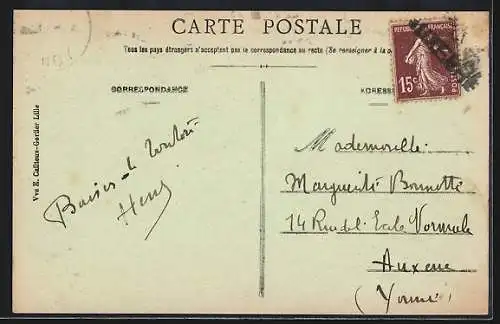 CARTE POSTALE
Tous les pays étrangers n'acceptent pas la correspondance au recto (Se renseigner à la
CORRESPONDANCE
ADRESSE
RÉPUBLIQUE FRANÇAISE
15c
POSTES
Vve E. Cailteux-Gortier Lille
Baisers
Henri
Mademoiselle
Marguerite Bonnotte
14 Rue de l'Ecole Normale
Auxerre
(Yonne)